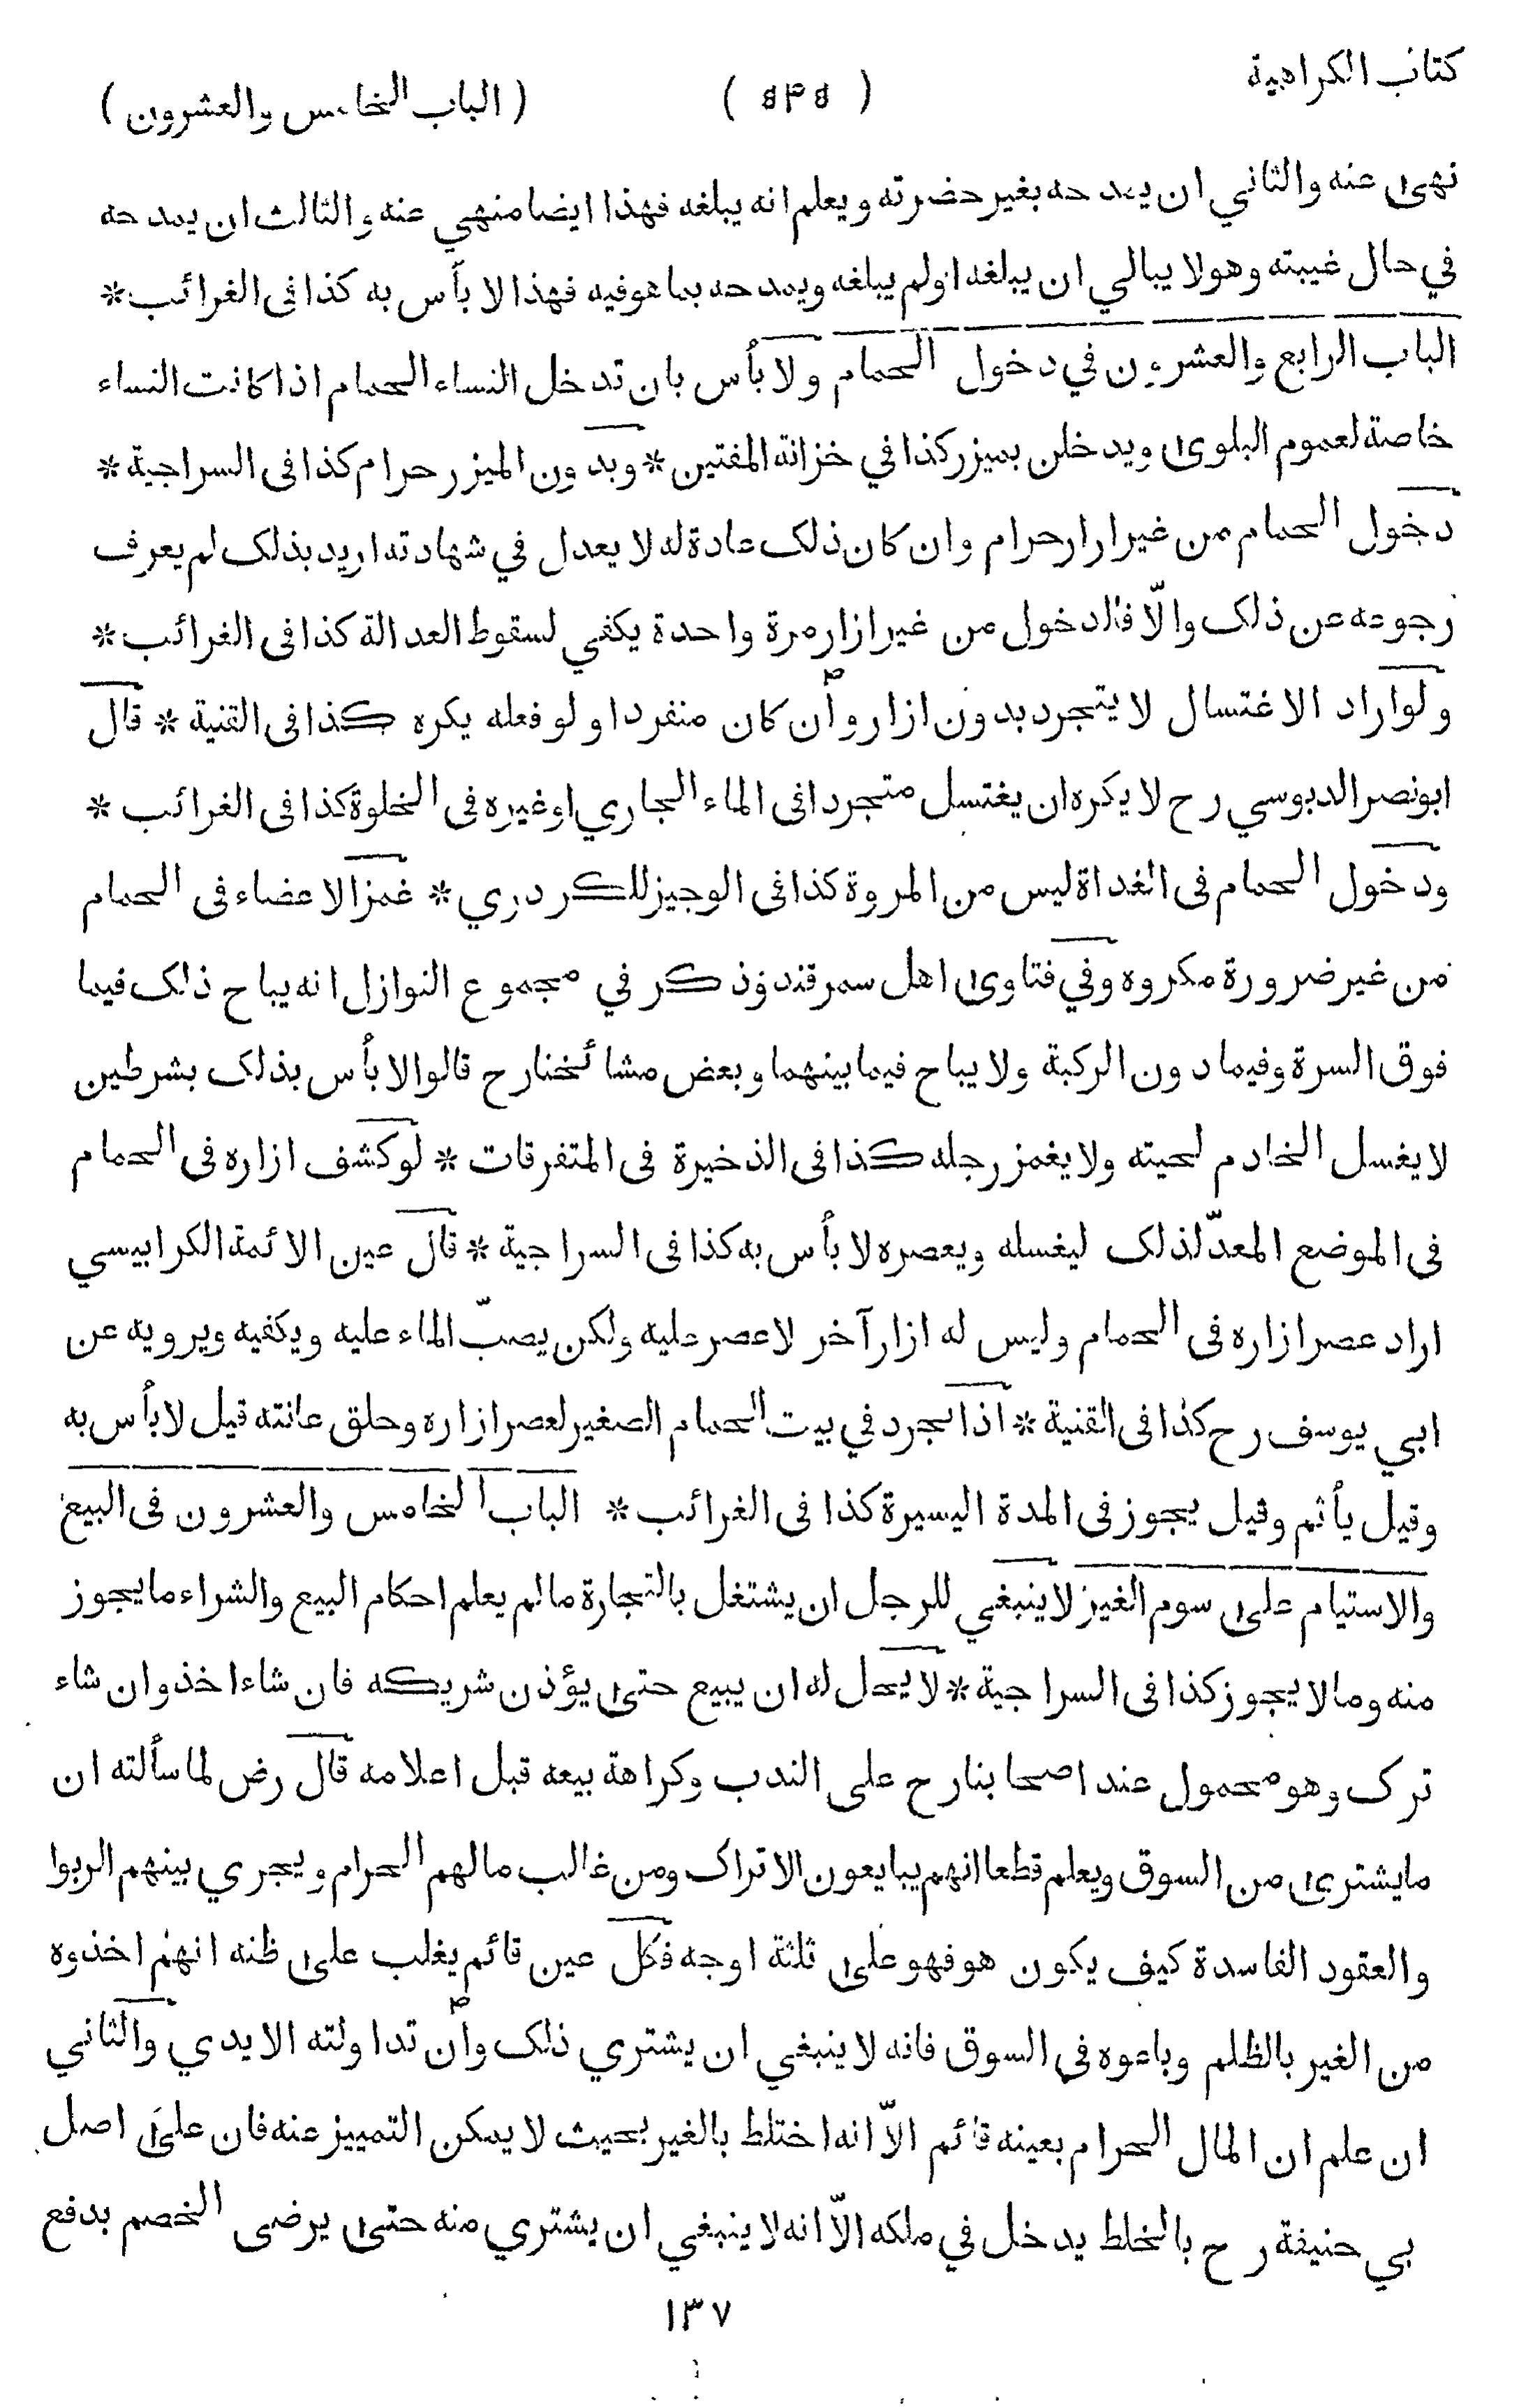 كتاب الكراهية
( ٥٤٥ )
( الباب الخامس والعشرون )
نهى عنه والثاني ان يمدحه بغير حضرته ويعلم انه يبلغه فهذا ايضا منهي عنه والثالث ان يمدحه
في حال غيبته وهو لا يبالي ان يبلغه او لم يبلغه ويمدحه بما هو فيه فهذا لا بأس به كذا فى الغرائب *
الباب الرابع والعشرون في دخول الحمام ولا بأس بان تدخل النساء الحمام اذا كانت النساء
خاصة لعموم البلوى ويدخلن بميزر كذا في خزانة المفتين * وبدون الميزر حرام كذا فى السراجية *
دخول الحمام من غير ازار حرام وان كان ذلك عادة له لا يعدل في شهادته اريد بذلك لم يعرف
رجوعه عن ذلك والّا فالدخول من غير ازار مرة واحدة يكفي لسقوط العدالة كذا فى الغرائب *
ولو اراد الاغتسال لا يتجرد بدون ازار وان كان منفردا ولو فعله يكره كذا فى القنية * قال
ابو نصر الدبوسي رح لا يكره ان يغتسل متجردا فى الماء الجاري او غيره فى الخلوة كذا فى الغرائب *
ودخول الحمام فى الغداة ليس من المروة كذا فى الوجيز للكردري * غمز الاعضاء فى الحمام
من غير ضرورة مكروه وفي فتاوى اهل سمرقند وذكر في مجموع النوازل انه يباح ذلك فيما
فوق السرة وفيما دون الركبة ولا يباح فيما بينهما وبعض مشائخنا رح قالوا لا بأس بذلك بشرطين
لا يغسل الخادم لحيته ولا يغمز رجله كذا فى الذخيرة فى المتفرقات * لو كشف ازاره فى الحمام
فى الموضع المعدّ لذلك ليغسله ويعصره لا بأس به كذا فى السراجية * قال عين الائمة الكرابيسي
اراد عصر ازاره فى الحمام وليس له ازار آخر لا عصر عليه ولكن يصبّ الماء عليه ويكفيه ويرويه عن
ابي يوسف رح كذا فى القنية * اذا تجرد في بيت الحمام الصغير لعصر ازاره وحلق عانته قيل لا بأس به
وقيل يأثم وقيل يجوز فى المدة اليسيرة كذا فى الغرائب * الباب الخامس والعشرون فى البيع
والاستيام على سوم الغير لا ينبغي للرجل ان يشتغل بالتجارة ما لم يعلم احكام البيع والشراء ما يجوز
منه وما لا يجوز كذا فى السراجية * لا يحل له ان يبيع حتى يؤذن شريكه فان شاء اخذ وان شاء
ترك وهو محمول عند اصحابنا رح على الندب وكراهة بيعه قبل اعلامه قال رض لما سألته ان
ما يشترى من السوق ويعلم قطعا انهم يبايعون الاتراك ومن غالب مالهم الحرام ويجري بينهم الربوا
والعقود الفاسدة كيف يكون هو فهو على ثلثة اوجه فكل عين قائم يغلب على ظنه انهم اخذوه
من الغير بالظلم وباعوه في السوق فانه لا ينبغي ان يشتري ذلك وان تداولته الايدي والثاني
ان علم ان المال الحرام بعينه قائم الّا انه اختلط بالغير بحيث لا يمكن التمييز عنه فان على اصل
بي حنيفة رح بالخلط يدخل في ملكه الّا انه لا ينبغي ان يشتري منه حتى يرضى الخصم بدفع
١٣٧